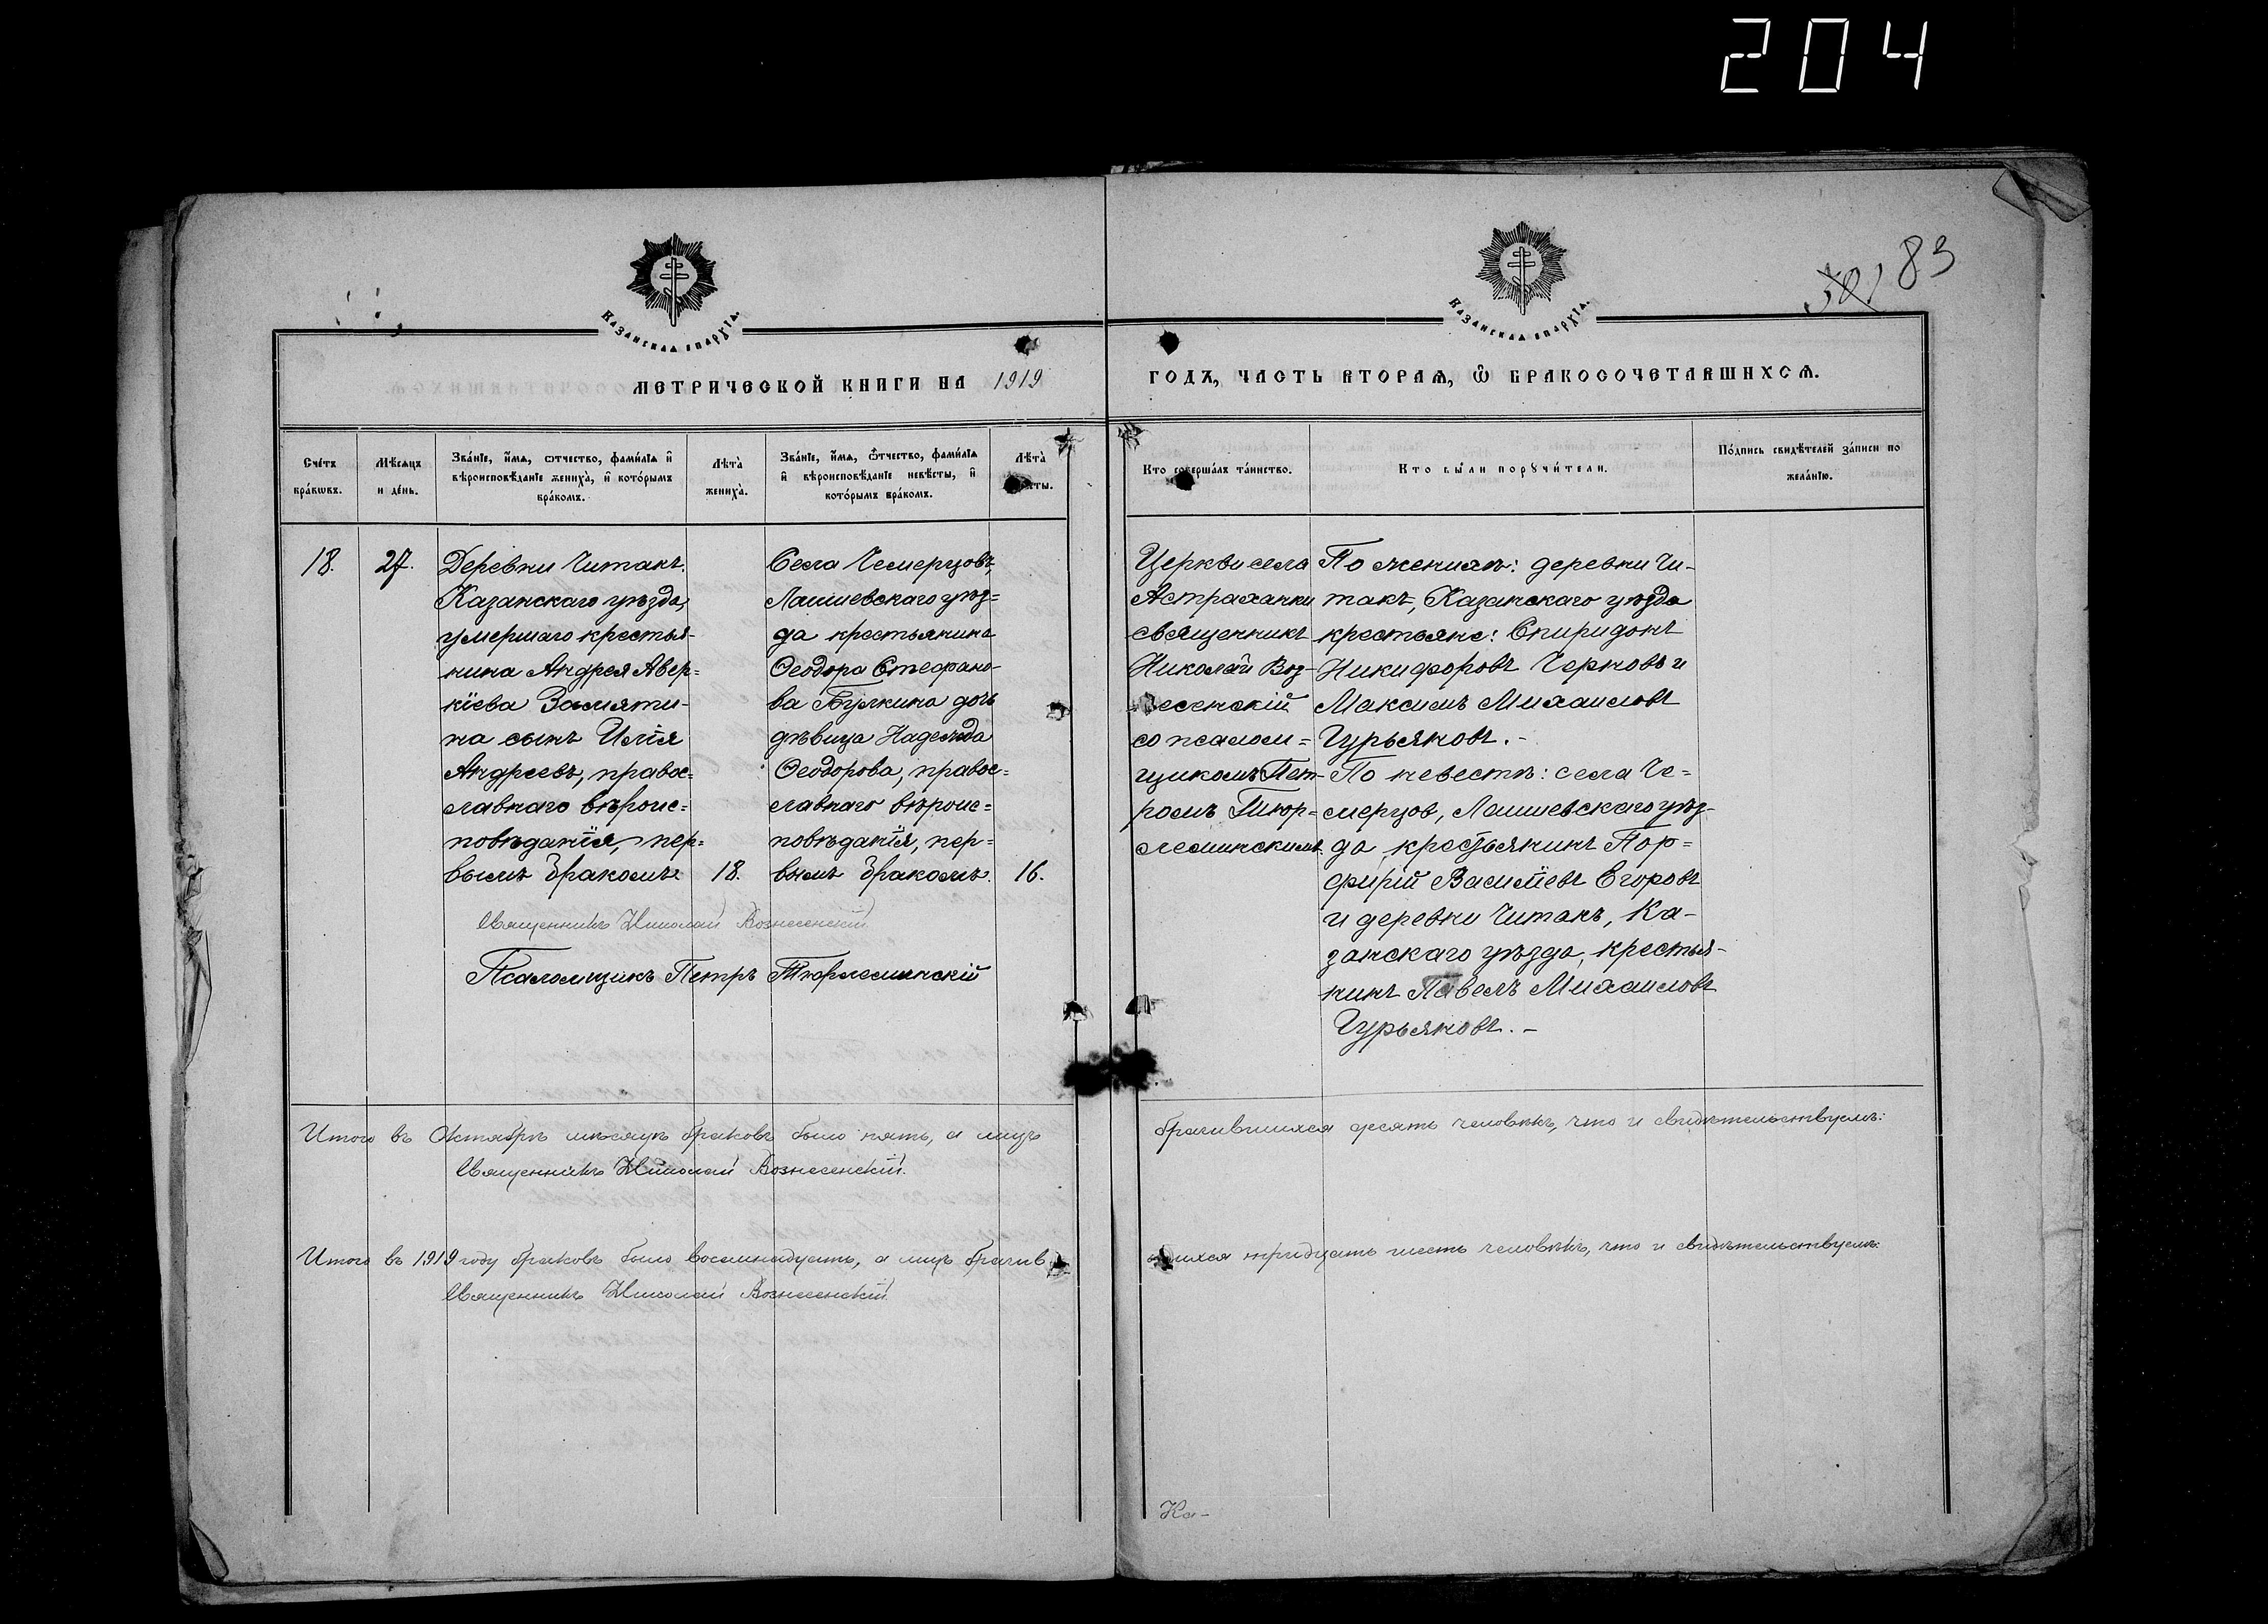 204
83
КАЗАНСКАѦ ЕПАРХІА.
КАЗАНСКАѦ ЕПАРХІА.
МЕТРИЧЕСКОЙ КНИГИ НА 1919
ГОДЪ, ЧАСТЬ ВТОРАѦ, Ѽ БРАКОСОЧЕТАВШИХСѦ.
Сче́тъ бра́кѡвъ.
Мѣ́сѧцъ и де́нь.
Зва́нїе, и҆́мѧ, ѻтчество, фами́лїѧ и҆ вѣроисповѣ́данїе жениха̀, и҆ кото́рымъ бра́комъ.
Лѣта̀ жениха̀.
Зва́нїе, и҆́мѧ, ѻ҆́тчество, фами́лїѧ и҆ вѣроисповѣ́данїе невѣ́сты, и҆ кото́рымъ бра́комъ.
Лѣта̀
Кто соверша́лъ та́инство.
Кто бы́ли порꙋчи́тели.
По́дпись свидѣ́телей за́писи по жела́нїю.
18.
27.
Деревни Читакъ
Казанскаго уѣзда,
умершаго крестья-
нина Андрея Авер=
кіева Замяти-
на сынъ Илія
Андреевъ, правос=
лавнаго вѣроис=
повѣданія, пер=
вымъ бракомъ
18.
Села Чемерцовъ,
Лаишевскаго уѣз=
да крестьянина
Ѳеодора Стефано-
ва Булкина дочь
дѣвица Надежда
Ѳеодорова, правос=
лавнаго вѣроис=
повѣданія, пер=
вымъ бракомъ.
16.
Священникъ Николай Вознесенскій
Псаломщикъ Петръ Тюрлеминскій
Церкви села
Астраханки
священникъ
Николай Воз-
несенскій
со псалом=
щикомъ Пет-
ромъ Тюр=
леминскимъ.
По женихѣ: деревни Чи-
такъ, Казанскаго уѣзда
крестьяне: Спиридонъ
Никифоровъ Черновъ и
Максимъ Михаиловъ
Гурьяновъ.-
По невестѣ: села Че=
мерцов, Лаишевскаго уѣз-
да, крестьянинъ Пор=
фирій Василіевъ Егоровъ
и деревни Читакъ, Ка-
занскаго уѣзда, крестья-
нинъ Павелъ Михаиловъ
Гурьяновъ.-
Итого въ Октябрѣ мѣсяцѣ браковъ было пять, а лицъ
брачившихся десять человѣкъ, что и свидѣтельствуемъ:
Священникъ Николай Вознесенскій.
Итого въ 1919 году браковъ было восемнадцать, а лицъ брачив
шихся тридцать шесть человѣкъ, что и свидѣтельствуемъ:
Священникъ Николай Вознесенскій
Ка-